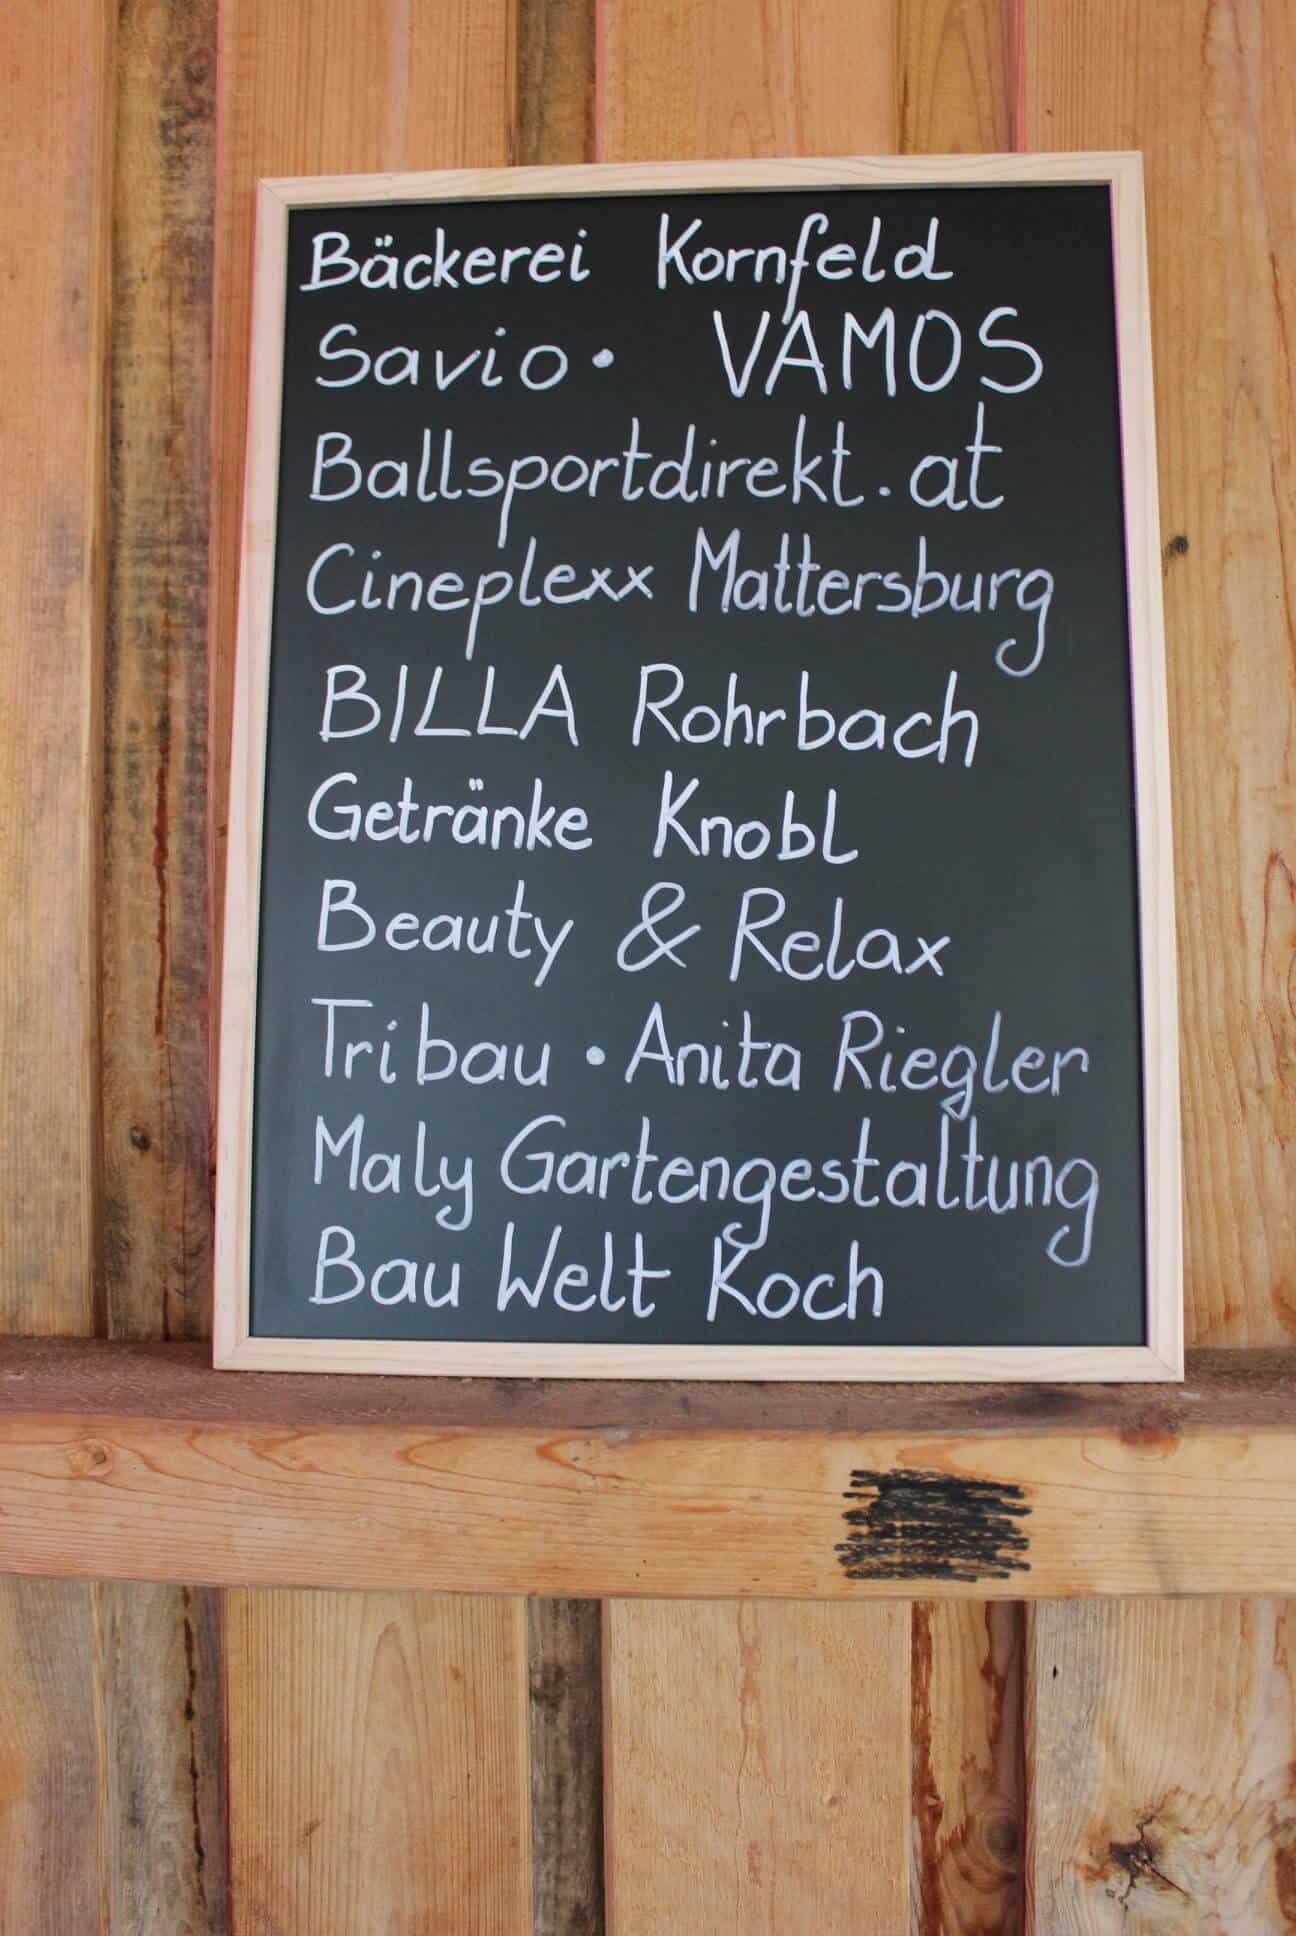 Bäckerei Kornfeld
Savio • VAMOS
Ballsportdirekt.at
Cineplexx Mattersburg
BILLA Rohrbach
Getränke Knobl
Beauty & Relax
Tribau • Anita Riegler
Maly Gartengestaltung
Bau Welt Koch